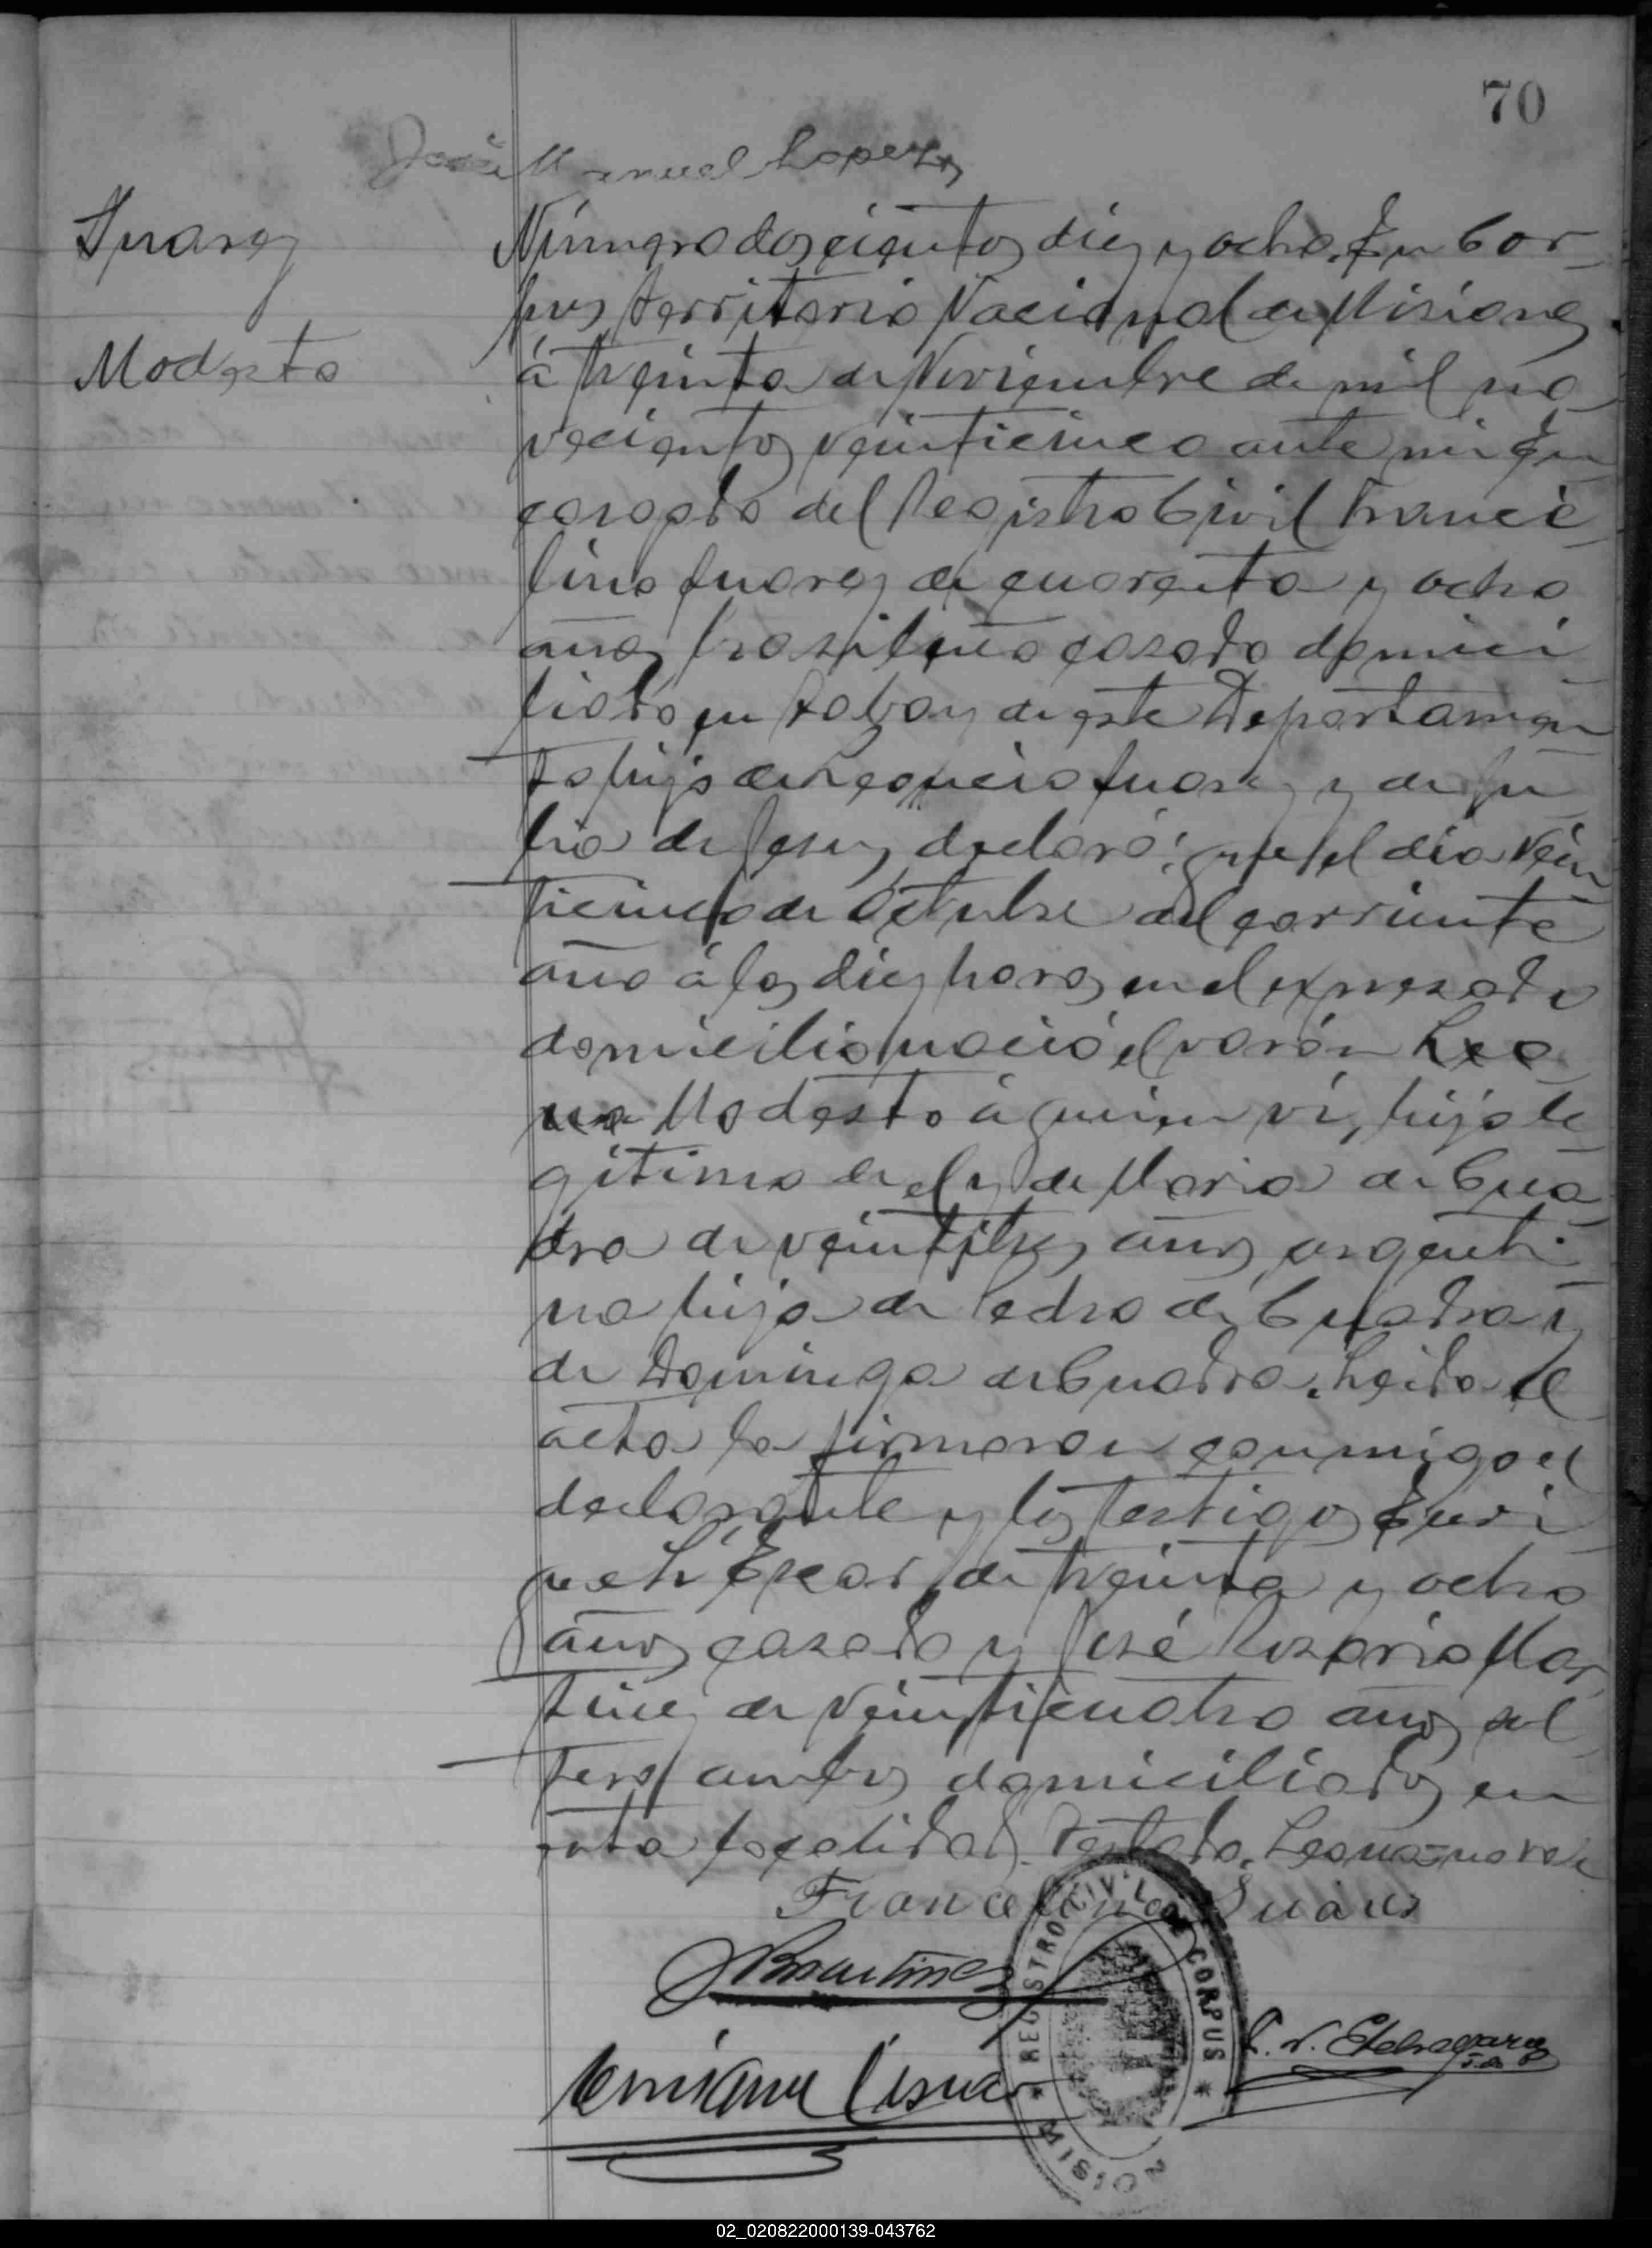 70
José Manuel Lopez
Suarez
Modesto
Número doscientos diez y ocho. En Cor-
pus territorio Nacional de Misiones
á treinta de Noviembre de mil no-
vecientos veinticinco ante mi En-
cargado del Registro Civil France-
lino Suarez de cuarenta y ocho
años brasileño casado domici-
liado en Tabay de este Departamen-
to hijo de Leoncio Suarez y de Ju-
lia de Jesus, declaró: que el dia Vein-
ticinco de Octubre del corriente
año á las diez horas en el expresado
domicilio nació el varón Leo
na Modesto á quien vi, hijo le-
gítimo de el y de Maria de Cua-
dra de veintitres años argenti-
na hija de Pedro de Cuadra y
de Dominga de Cuadra. Leida el
acta la firmaron conmigo el
declarante y los testigos Enri-
que Liscar de treinta y ocho
años casado y José Rosario Mar-
tinez de veinticuatro años sol-
tero ambos domiciliados en
esta localidad. Testado. Leona = no vale
Francelino Suares
JRMartinez
Enrique Liscar
P. V. Etchegaray
REGISTRO CIVIL DE CORPUS
MISIONES
02_020822000139-043762